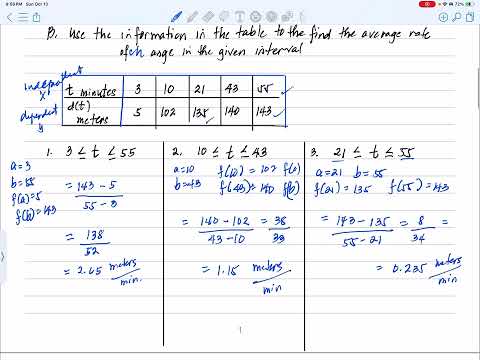 9:59 PM Sun Oct 10
72%
B. Use the information in the table to the find the average rate
of change in the given interval
independent
x
t minutes 3 10 21 43 55
dependent
y
d(t) meters 5 102 135 140 143
1. 3 ≤ t ≤ 55
a = 3
b = 55
f(a) = 5
f(b) = 143
= 143 - 5 / 55 - 3
= 138 / 52
= 2.65 meters/min.
2. 10 ≤ t ≤ 43
a = 10 f(10) = 102 f(a)
b = 43 f(43) = 140 f(b)
= 140 - 102 / 43 - 10 = 38 / 33
= 1.15 meters/min
3. 21 ≤ t ≤ 55
a = 21 b = 55
f(21) = 135 f(55) = 143
= 143 - 135 / 55 - 21 = 8 / 34 =
= 0.235 meters/min
1